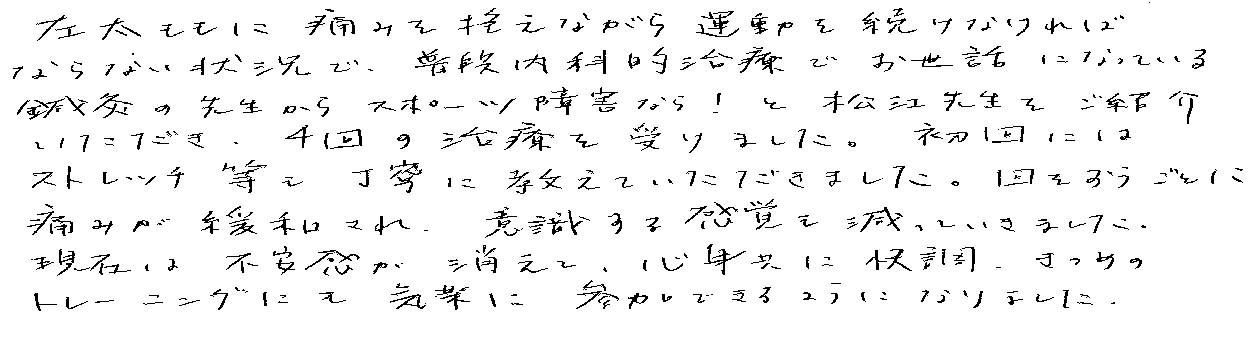 左太ももに 痛みを抱えながら 運動を続けなければ
ならない状況で、普段内科的治療でお世話になっている
鍼灸の先生からスポーツ障害なら！と松江先生をご紹介
いただき、4回の治療を受けました。初回には
ストレッチ等も丁寧に教えていただきました。回をおうごとに
痛みが緩和され、意識する感覚も減っていきました。
現在は不安感が消えて、心身共に快調、きつめの
トレーニングにも気楽に参加できるようになりました。